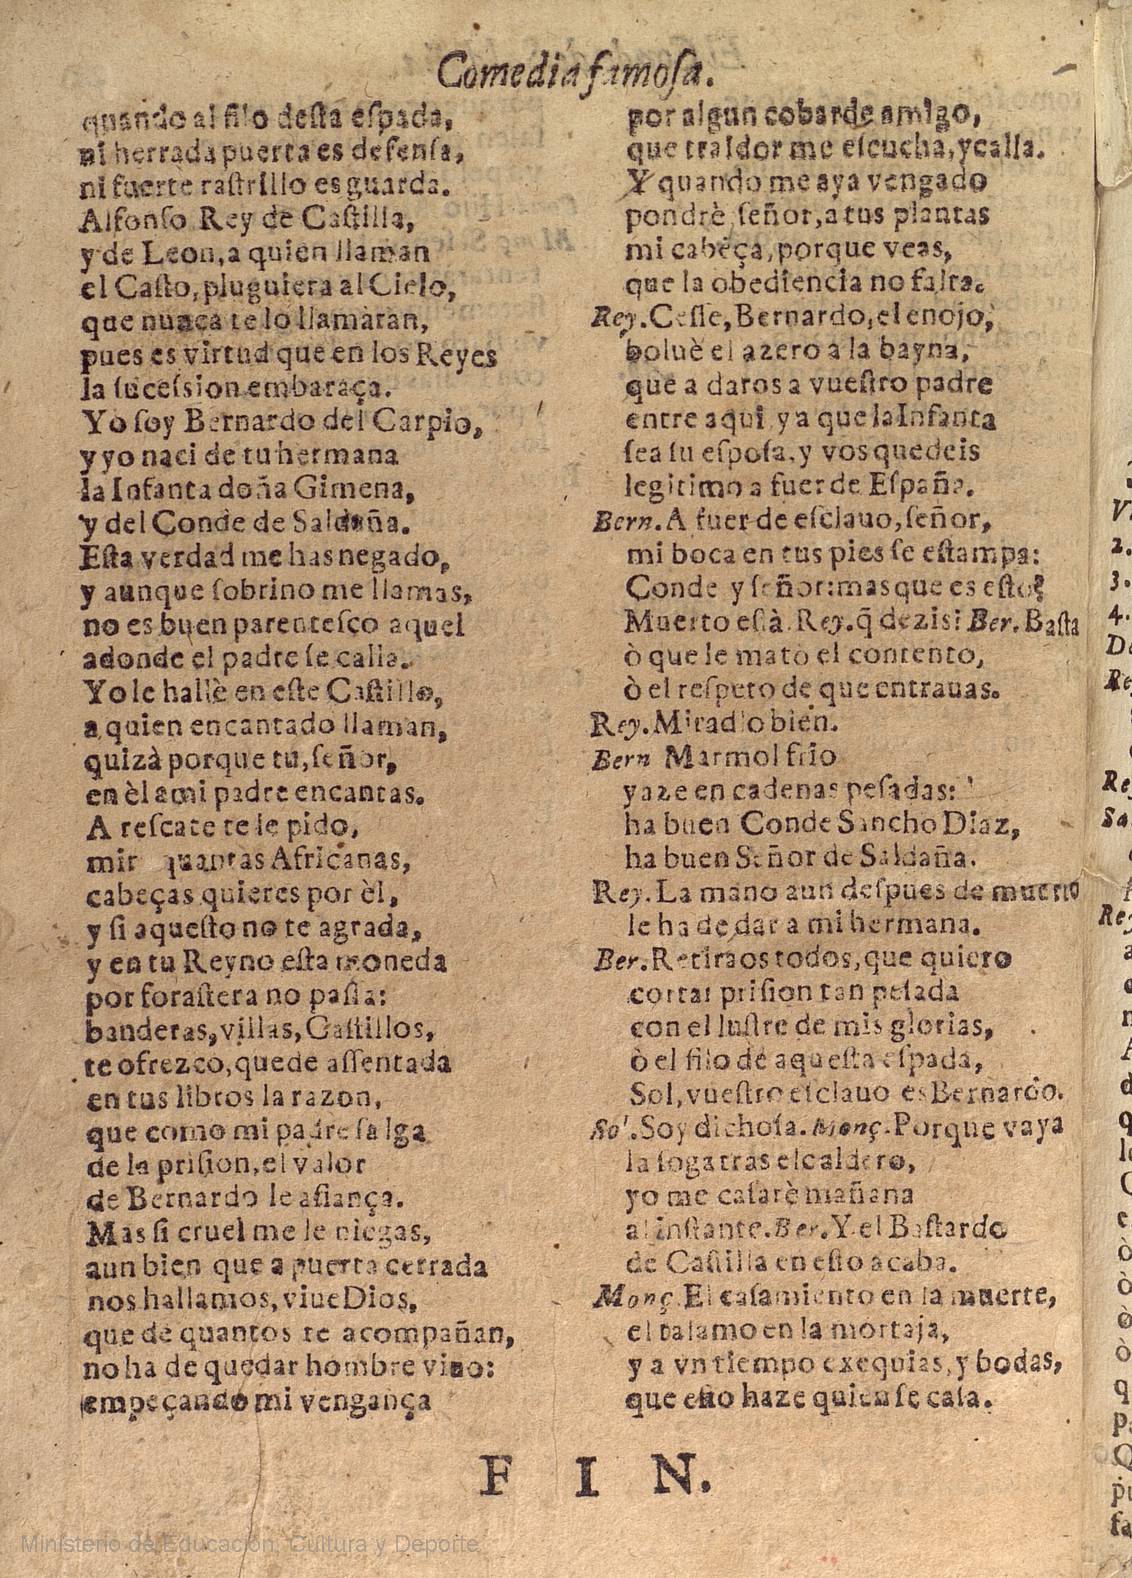 Comedia famosa.
quando al filo desta espada,
ni herrada puerta es defensa,
ni fuerte rastrillo es guarda.
Alfonso Rey de Castilla,
y de Leon, a quien llaman
el Casto, pluguiera al Cielo,
que nunca te lo llamàran,
pues es virtud que en los Reyes
la sucession embaraça.
Yo soy Bernardo del Carpio,
y yo naci de tu hermana
la Infanta doña Gimena,
y del Conde de Saldaña.
Esta verdad me has negado,
y aunque sobrino me llamas,
no es buen parentesco aquel
adonde el padre se calla.
Yo le hallè en este Castillo,
a quien encantado llaman,
quizà porque tu, señor,
en èl a mi padre encantas.
A rescate te le pido,
mir quantas Africanas,
cabeças quieres por èl,
y si aquesto no te agrada,
y en tu Reyno esta moneda
por forastera no passa:
banderas, villas, Castillos,
te ofrezco, quede assentada
en tus libros la razon,
que como mi padre salga
de la prision, el valor
de Bernardo le afiança.
Mas si cruel me le niegas,
aun bien que a puerta cerrada
nos hallamos, viue Dios,
que de quantos te acompañan,
no ha de quedar hombre viuo:
empeçando mi vengança
por algun cobarde amigo,
que traidor me escucha, y calla.
Y quando me aya vengado
pondrè señor, a tus plantas
mi cabeça, porque veas,
que la obediencia no falta.
Rey. Cesse, Bernardo, el enojo,
boluè el azero a la bayna,
que a daros a vuestro padre
entre aqui, y a que la Infanta
sea su esposa, y vos quedeis
legitimo a fuer de España.
Bern. A fuer de esclauo, señor,
mi boca en tus pies se estampa:
Conde y señor: mas que es esto?
Muerto està. Rey. q̃ dezis? Ber. Basta
ò que le matò el contento,
ò el respeto de que entrauas.
Rey. Miradlo bien.
Bern Marmol frio
yaze en cadenas pesadas:
ha buen Conde Sancho Diaz,
ha buen Señor de Saldaña.
Rey. La mano aun despues de muerto
le ha de dar a mi hermana.
Ber. Retiraos todos, que quiero
cortar prision tan pesada
con el lustre de mis glorias,
ò el filo de aquesta espada,
Sol, vuestro esclauo es Bernardo.
Sol. Soy dichosa. Monç. Porque vaya
la soga tras el caldero,
yo me casarè mañana
al instante. Ber. Y el Bastardo
de Castilla en esto acaba.
Monç. El casamiento en la muerte,
el talamo en la mortaja,
y a vn tiempo exequias, y bodas,
que esto haze quien se casa.
F I N.
Ministerio de Educación, Cultura y Deporte